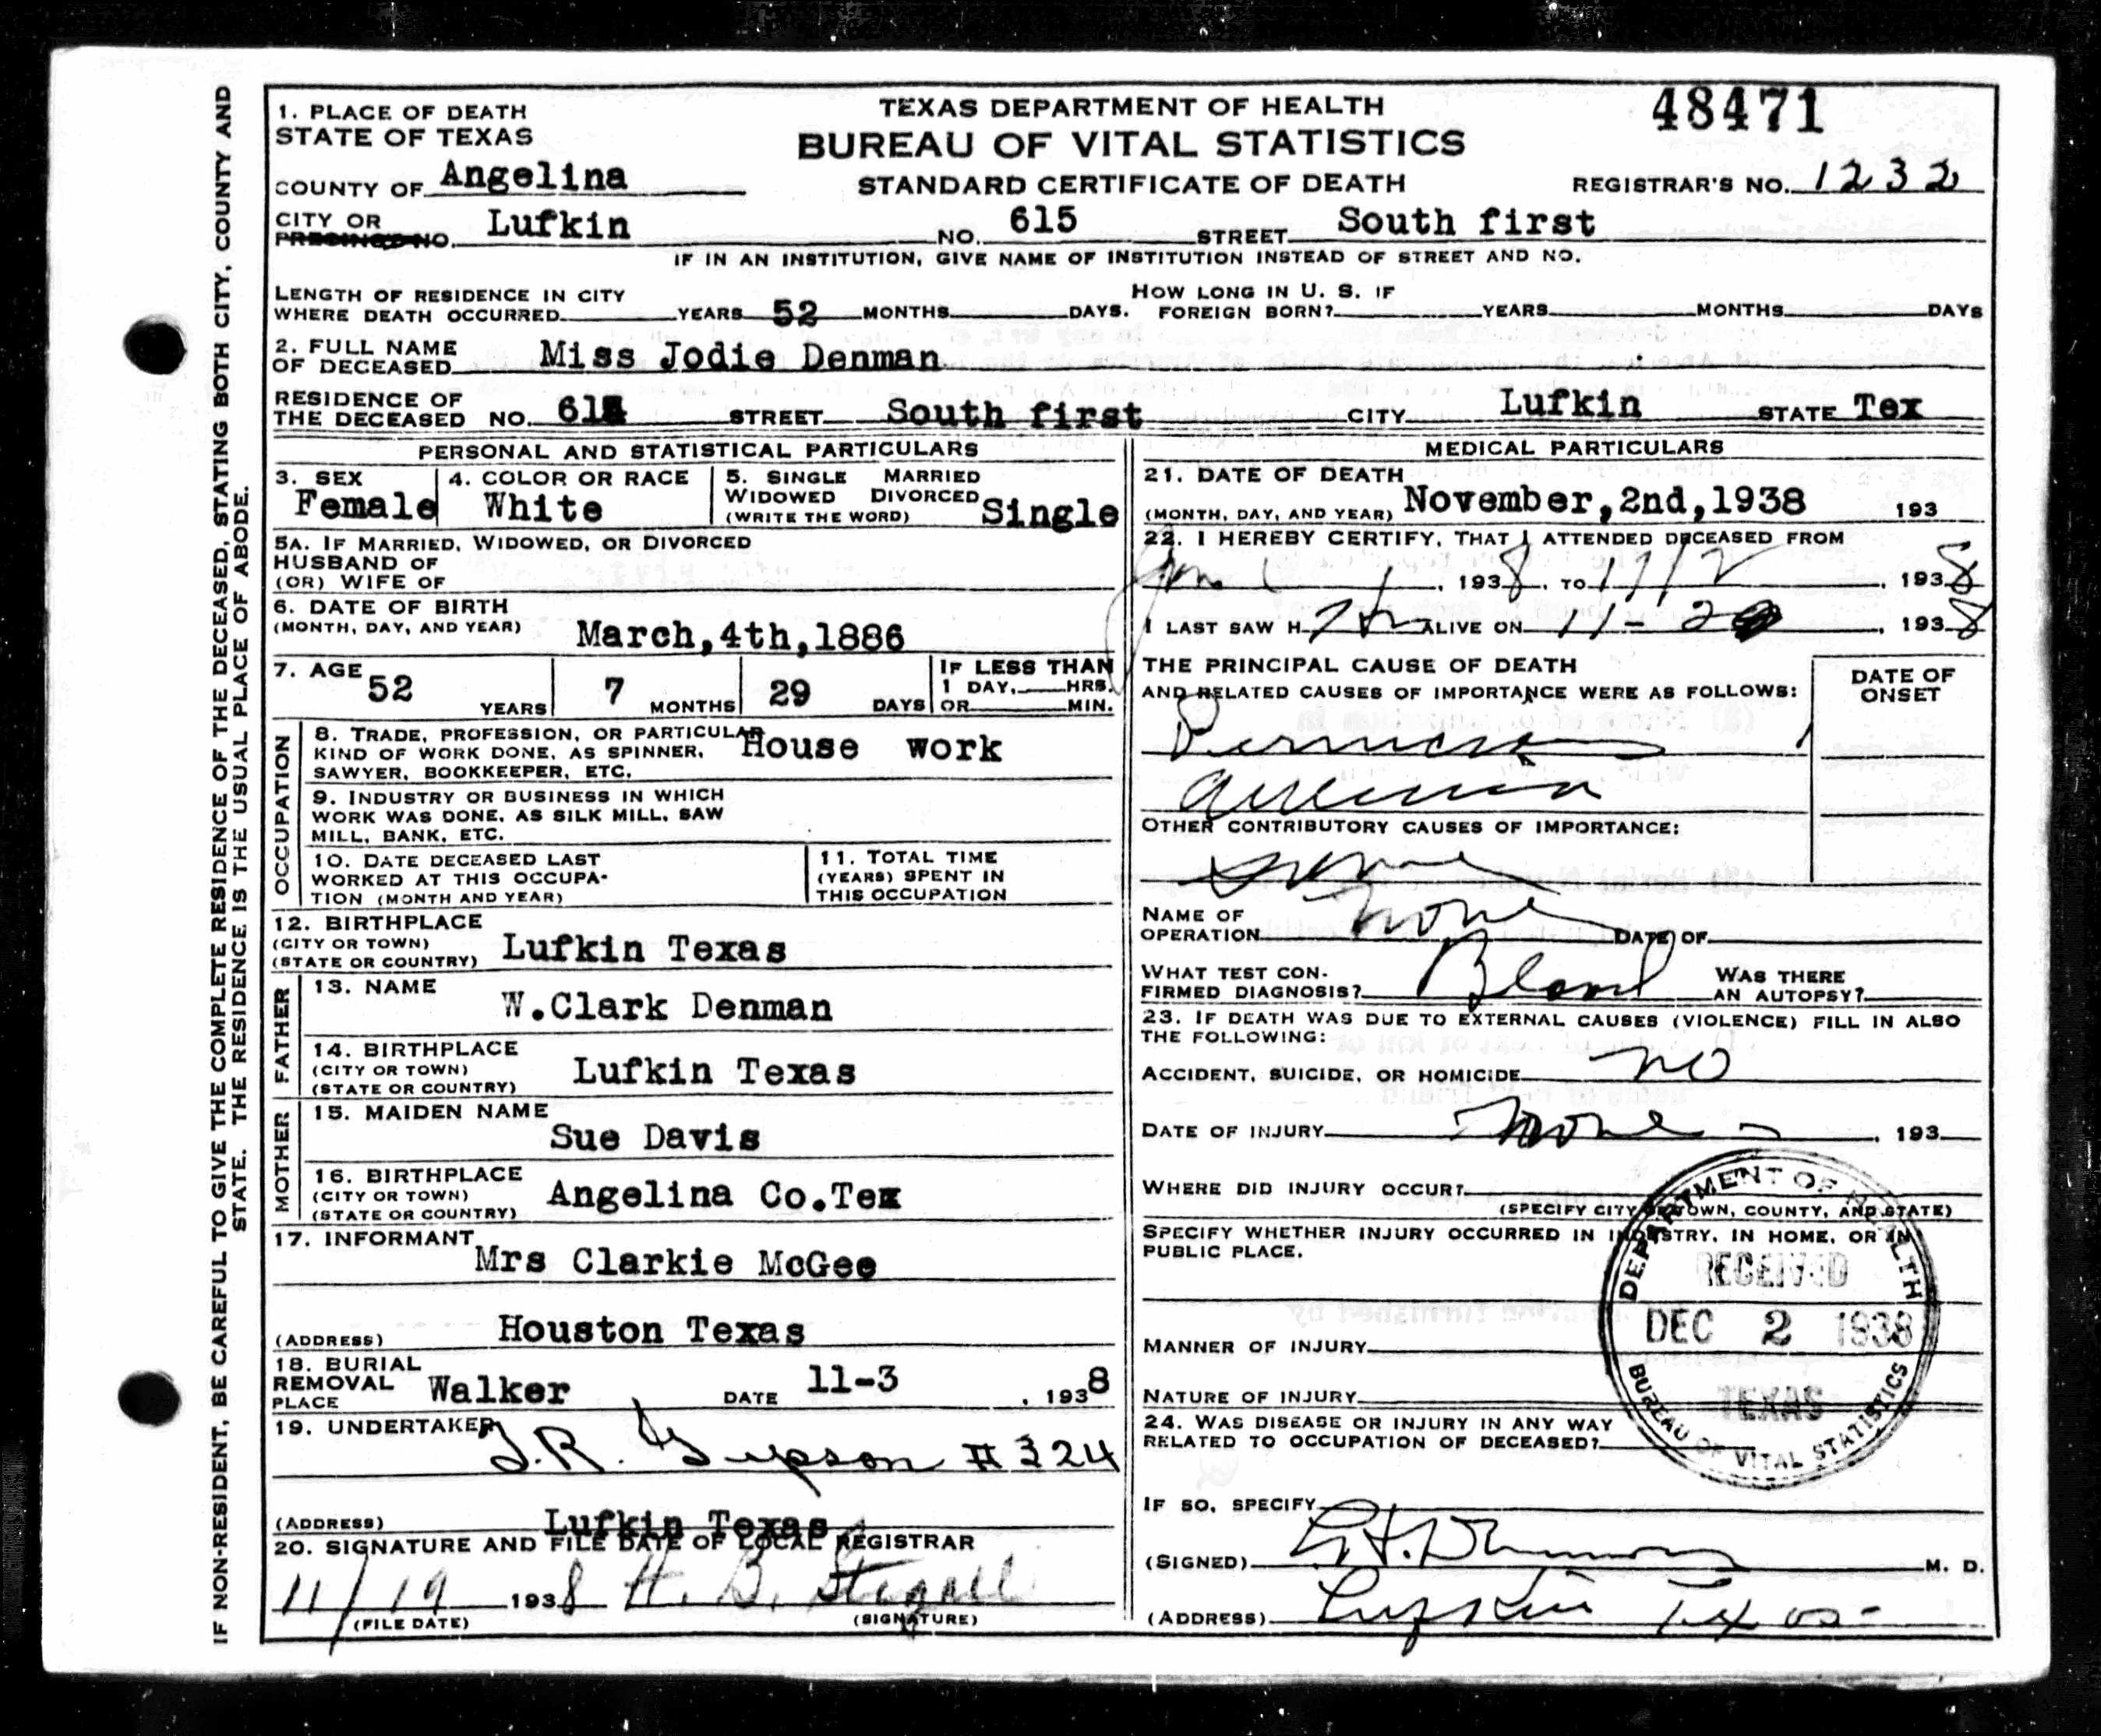 48471
TEXAS DEPARTMENT OF HEALTH
BUREAU OF VITAL STATISTICS
STANDARD CERTIFICATE OF DEATH
REGISTRAR'S NO. 1232
1. PLACE OF DEATH
STATE OF TEXAS
COUNTY OF Angelina
CITY OR PRECINCT NO. Lufkin NO. 615 STREET South first
IF IN AN INSTITUTION, GIVE NAME OF INSTITUTION INSTEAD OF STREET AND NO.
LENGTH OF RESIDENCE IN CITY
WHERE DEATH OCCURRED YEARS 52 MONTHS DAYS. HOW LONG IN U. S. IF FOREIGN BORN? YEARS MONTHS DAYS
2. FULL NAME
OF DECEASED Miss Jodie Denman
RESIDENCE OF
THE DECEASED NO. STREET South first CITY Lufkin STATE Tex
PERSONAL AND STATISTICAL PARTICULARS
3. SEX Female
4. COLOR OR RACE White
5. SINGLE MARRIED
WIDOWED DIVORCED
(WRITE THE WORD) Single
5A. IF MARRIED, WIDOWED, OR DIVORCED
HUSBAND OF
(OR) WIFE OF
6. DATE OF BIRTH
(MONTH, DAY, AND YEAR) March,4th,1886
7. AGE 52 YEARS 7 MONTHS 29 DAYS
IF LESS THAN
1 DAY, HRS.
OR MIN.
OCCUPATION
8. TRADE, PROFESSION, OR PARTICULAR
KIND OF WORK DONE, AS SPINNER,
SAWYER, BOOKKEEPER, ETC. House work
9. INDUSTRY OR BUSINESS IN WHICH
WORK WAS DONE, AS SILK MILL, SAW
MILL, BANK, ETC.
10. DATE DECEASED LAST
WORKED AT THIS OCCUPA-
TION (MONTH AND YEAR)
11. TOTAL TIME
(YEARS) SPENT IN
THIS OCCUPATION
12. BIRTHPLACE
(CITY OR TOWN)
(STATE OR COUNTRY) Lufkin Texas
FATHER
13. NAME W.Clark Denman
14. BIRTHPLACE
(CITY OR TOWN)
(STATE OR COUNTRY) Lufkin Texas
MOTHER
15. MAIDEN NAME Sue Davis
16. BIRTHPLACE
(CITY OR TOWN)
(STATE OR COUNTRY) Angelina Co.Tex
17. INFORMANT Mrs Clarkie McGee
(ADDRESS) Houston Texas
18. BURIAL
REMOVAL
PLACE Walker DATE 11-3 , 1938
19. UNDERTAKER J.R. Gipson #324
(ADDRESS) Lufkin Texas
20. SIGNATURE AND FILE DATE OF LOCAL REGISTRAR
11/19 1938 H. B. Stegall
(FILE DATE) (SIGNATURE)
MEDICAL PARTICULARS
21. DATE OF DEATH
(MONTH, DAY, AND YEAR) November,2nd,1938 193
22. I HEREBY CERTIFY, THAT I ATTENDED DECEASED FROM
Jan 1 , 1938, TO 11/2 , 1938
I LAST SAW H ALIVE ON 11-2 , 1938
THE PRINCIPAL CAUSE OF DEATH
AND RELATED CAUSES OF IMPORTANCE WERE AS FOLLOWS:
DATE OF
ONSET
Pernicious
anemia
OTHER CONTRIBUTORY CAUSES OF IMPORTANCE:
None
NAME OF
OPERATION None DATE OF
WHAT TEST CON-
FIRMED DIAGNOSIS? Blood WAS THERE
AN AUTOPSY?
23. IF DEATH WAS DUE TO EXTERNAL CAUSES (VIOLENCE) FILL IN ALSO
THE FOLLOWING:
ACCIDENT, SUICIDE, OR HOMICIDE no
DATE OF INJURY None , 193
WHERE DID INJURY OCCUR?
(SPECIFY CITY OR TOWN, COUNTY, AND STATE)
SPECIFY WHETHER INJURY OCCURRED IN INDUSTRY, IN HOME, OR IN
PUBLIC PLACE.
MANNER OF INJURY
NATURE OF INJURY
24. WAS DISEASE OR INJURY IN ANY WAY
RELATED TO OCCUPATION OF DECEASED?
IF SO, SPECIFY
(SIGNED) M. D.
(ADDRESS) Lufkin Texas
DEPARTMENT OF HEALTH
RECEIVED
DEC 2 1938
TEXAS
BUREAU OF VITAL STATISTICS
IF NON-RESIDENT, BE CAREFUL TO GIVE THE COMPLETE RESIDENCE OF THE DECEASED, STATING BOTH CITY, COUNTY AND
STATE. THE RESIDENCE IS THE USUAL PLACE OF ABODE.